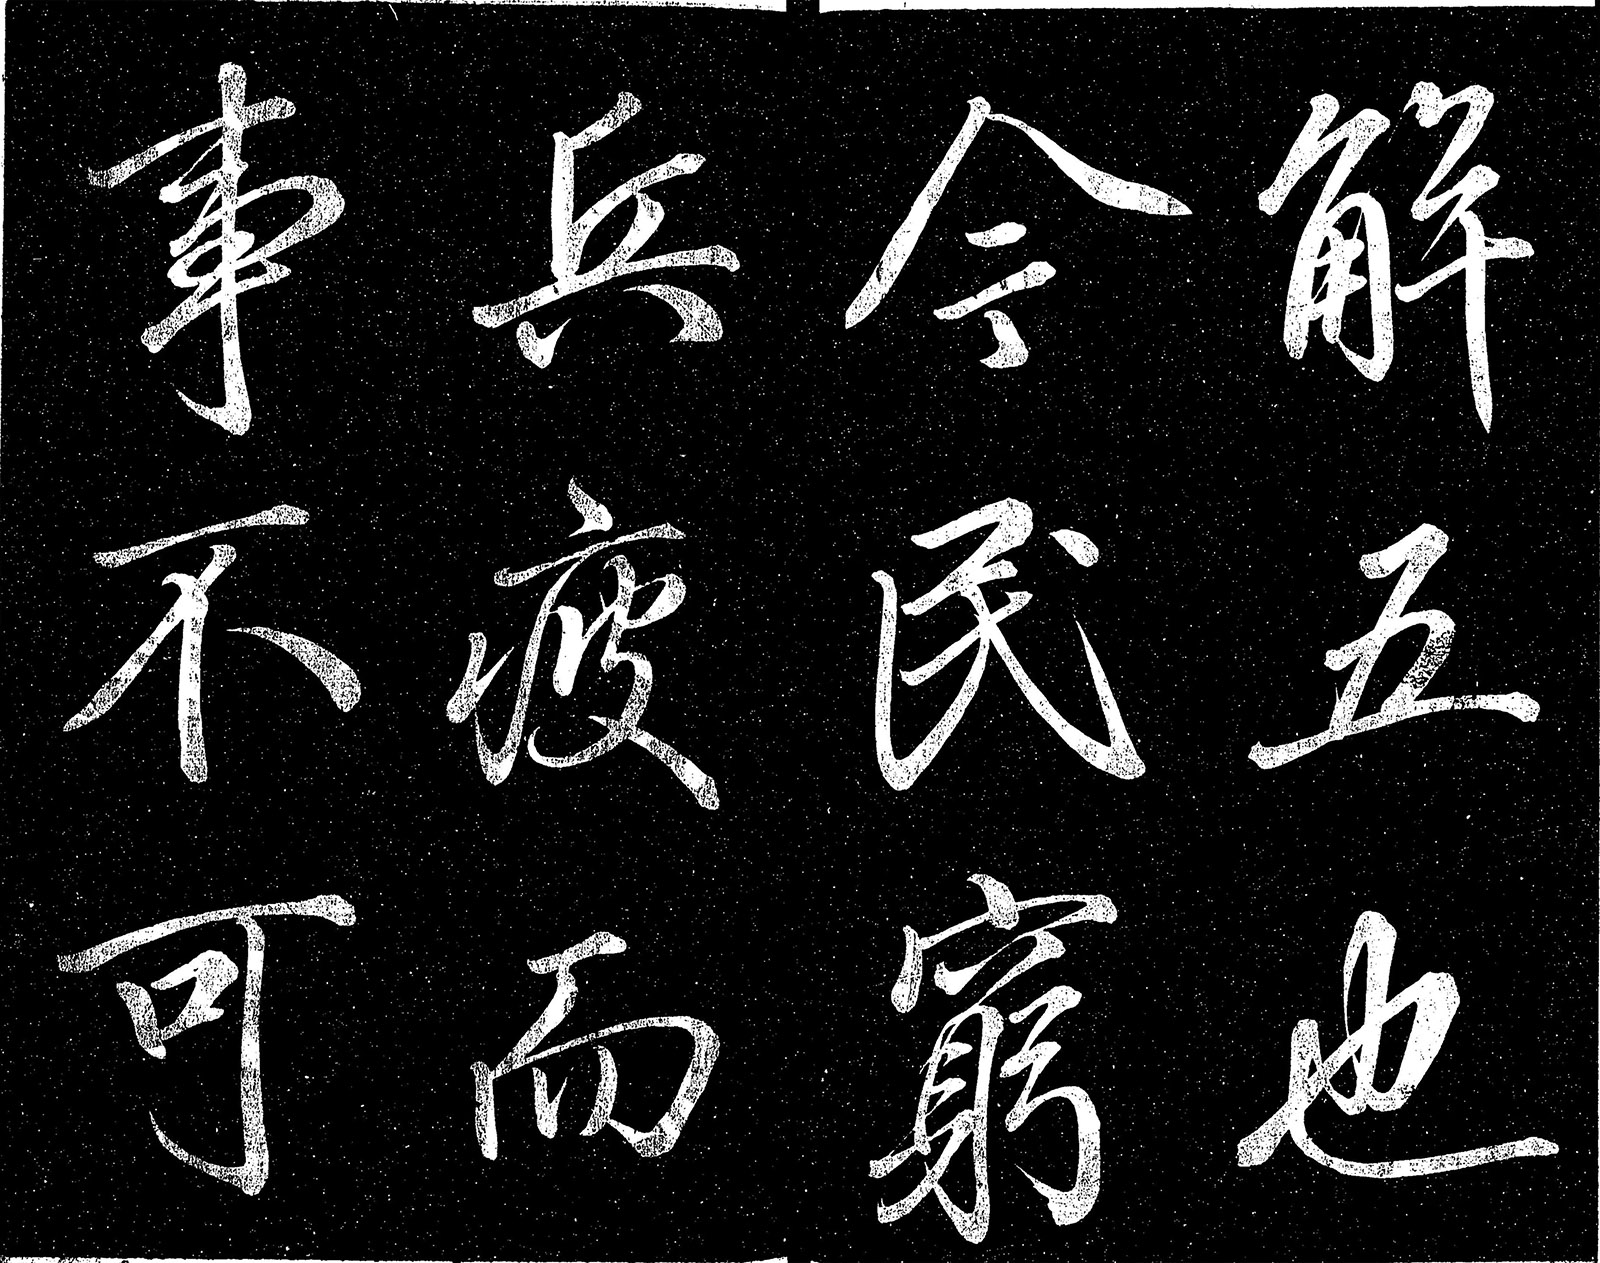 解五也
今民窮
兵疲而
事不可